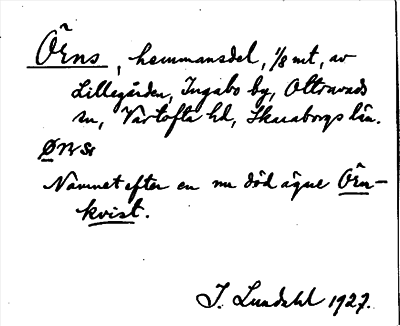 Örns, hemmansdel, 1/8 mt, av
Lillegården, Ingabo by, Ottravads
sn, Vartofta hd, Skaraborgs län.
Namnet efter en nu död ägare Örn-
kvist.
I. Lundahl 1927.